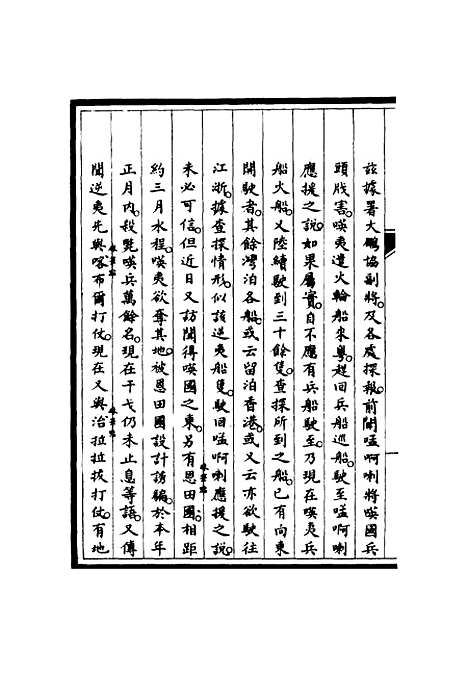 茲據署大鵬協副將及各處探報前聞𠸄啊喇將𠸄國兵
頭戕害𠸄夷遣火輪船來粵趕回兵船巡船駛至嗌啊喇
應援之說如果屬實自不應有兵船駛至乃現在𠸄夷兵
船火船又陸續駛到三十餘隻查探所到之船已有向東
開駛者其餘灣泊各船或云留泊香港或又云亦欲駛往
江浙據查探情形似該逆夷船隻駛回嗌啊喇應援之說
未必可信但近日又訪聞得𠸄國之東另有恩田國相距
約三月水程𠸄夷欲奪其地被恩田國設計誘騙於本年
正月內殺斃𠸄兵萬餘名現在干戈仍未止息等語又傳
聞逆夷先與喀布爾打仗現在又與治拉拉拔打仗有地